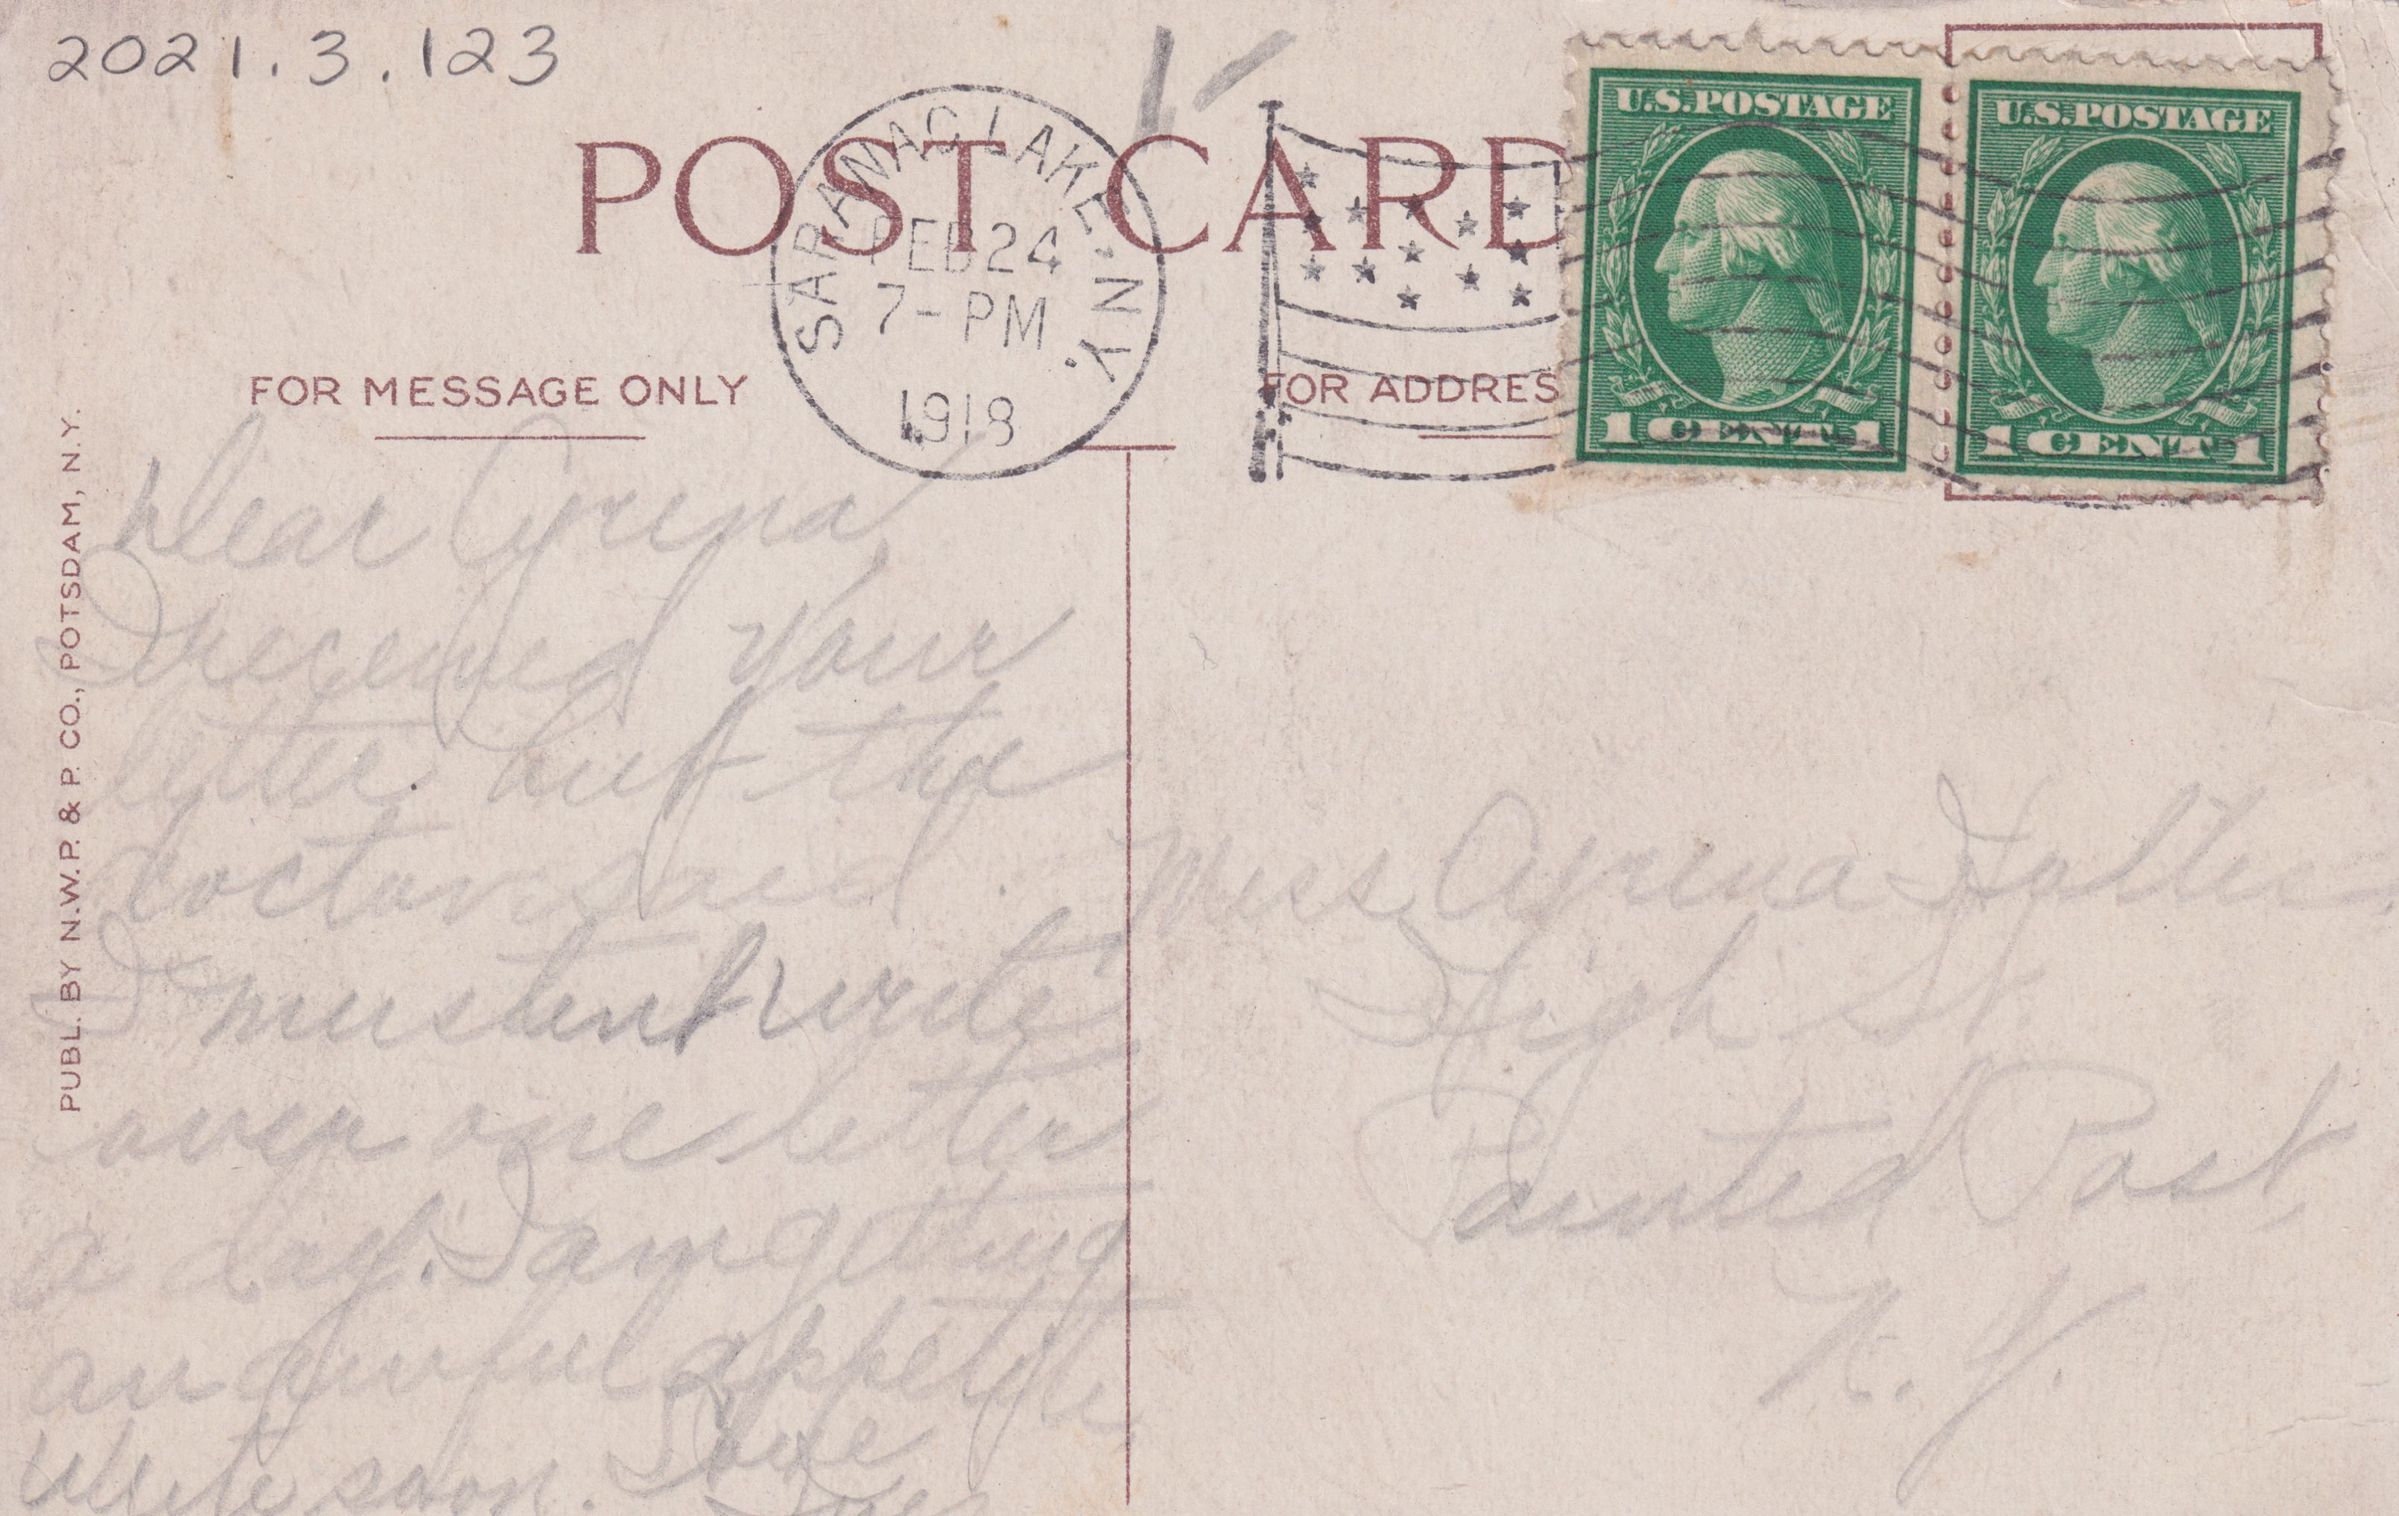 2021.3.123
POST CARD
SARANAC LAKE. N.Y.
FEB 24
7-PM
1918
U.S. POSTAGE
1 CENT 1
U.S. POSTAGE
1 CENT 1
FOR MESSAGE ONLY
FOR ADDRES
PUBL. BY N.W.P. & P. CO., POTSDAM, N.Y.
Dear Cyrena,
I received your
letter but the
doctor said
I mustent write
over one letter
a day. I am getting
an awful appetite
Write soon. Love
Miss Cyrena
High St.
Painted Post,
N.Y.